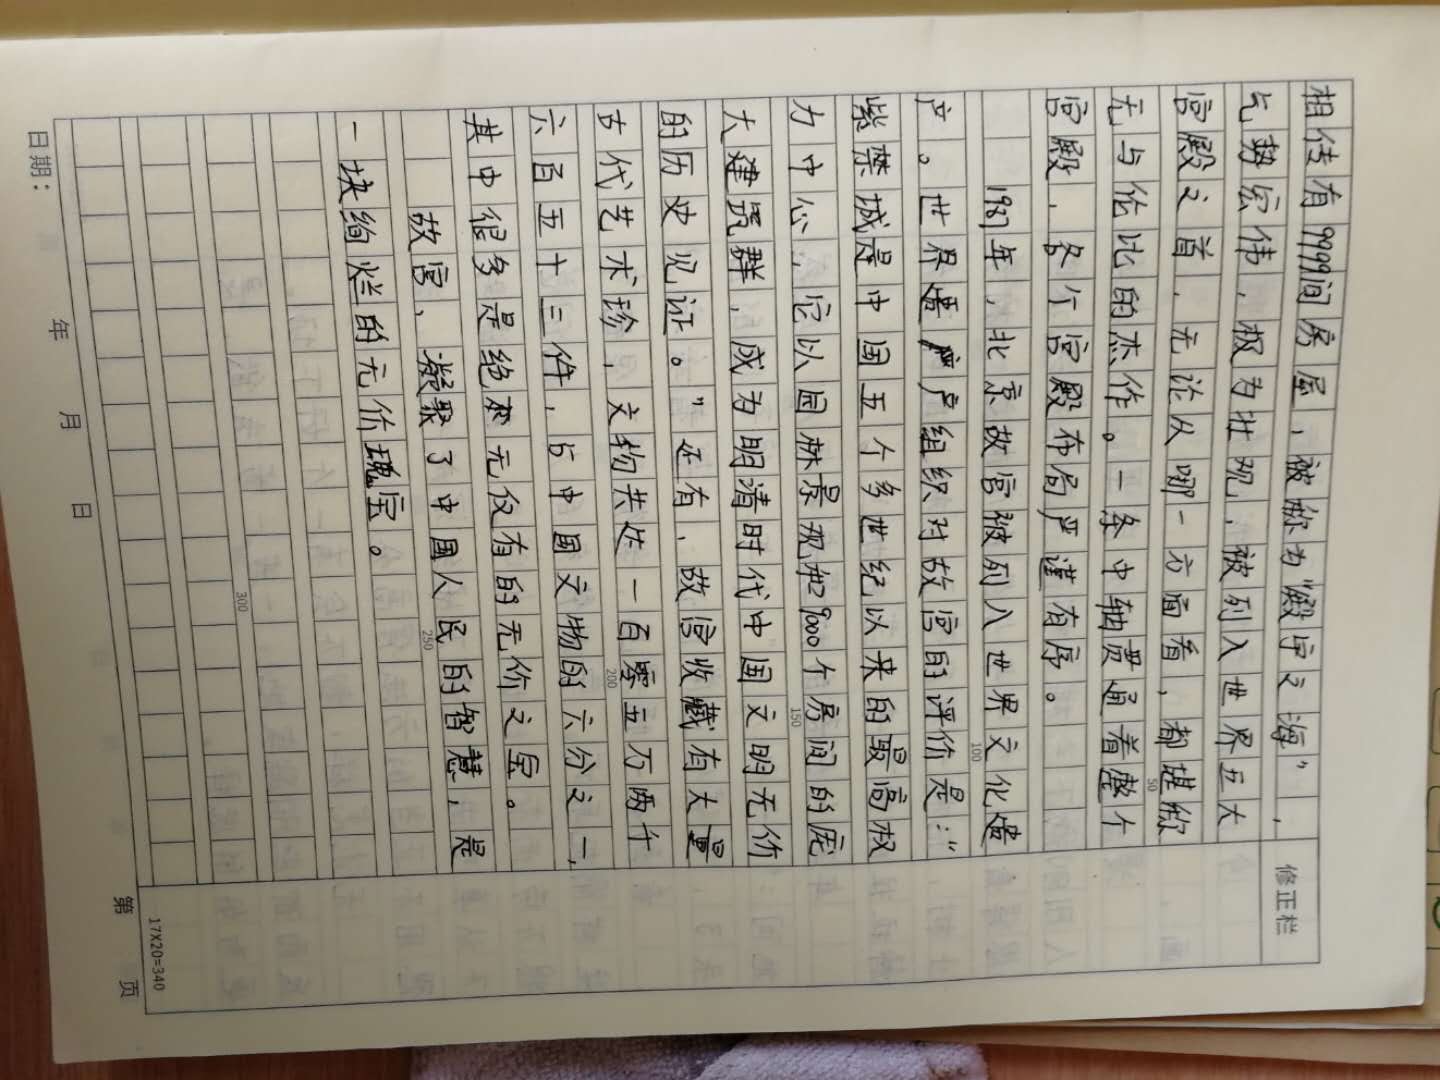 相传有9999间房屋，被称为“殿宇之海”，
气势宏伟，极为壮观，被列入世界五大
宫殿之首，无论从哪一方面看，都堪称
无与伦比的杰作。一条中轴贯通着整个
宫殿，各个宫殿布局严谨有序。
1987年，北京故宫被列入世界文化遗
产。世界遗产组织对故宫的评价是：“
紫禁城是中国五个多世纪以来的最高权
力中心，它以园林景观和9000个房间的庞
大建筑群，成为明清时代中国文明无价
的历史见证。”还有，故宫收藏有大量
古代艺术珍，文物共达一百零五万两千
六百五十三件，占中国文物的六分之一，
其中很多是绝无仅有的无价之宝。
故宫，凝聚了中国人民的智慧，是
一块绚烂的无价瑰宝。
修正栏
50
100
150
200
250
300
17X20=340
日期： 年 月 日 第 页